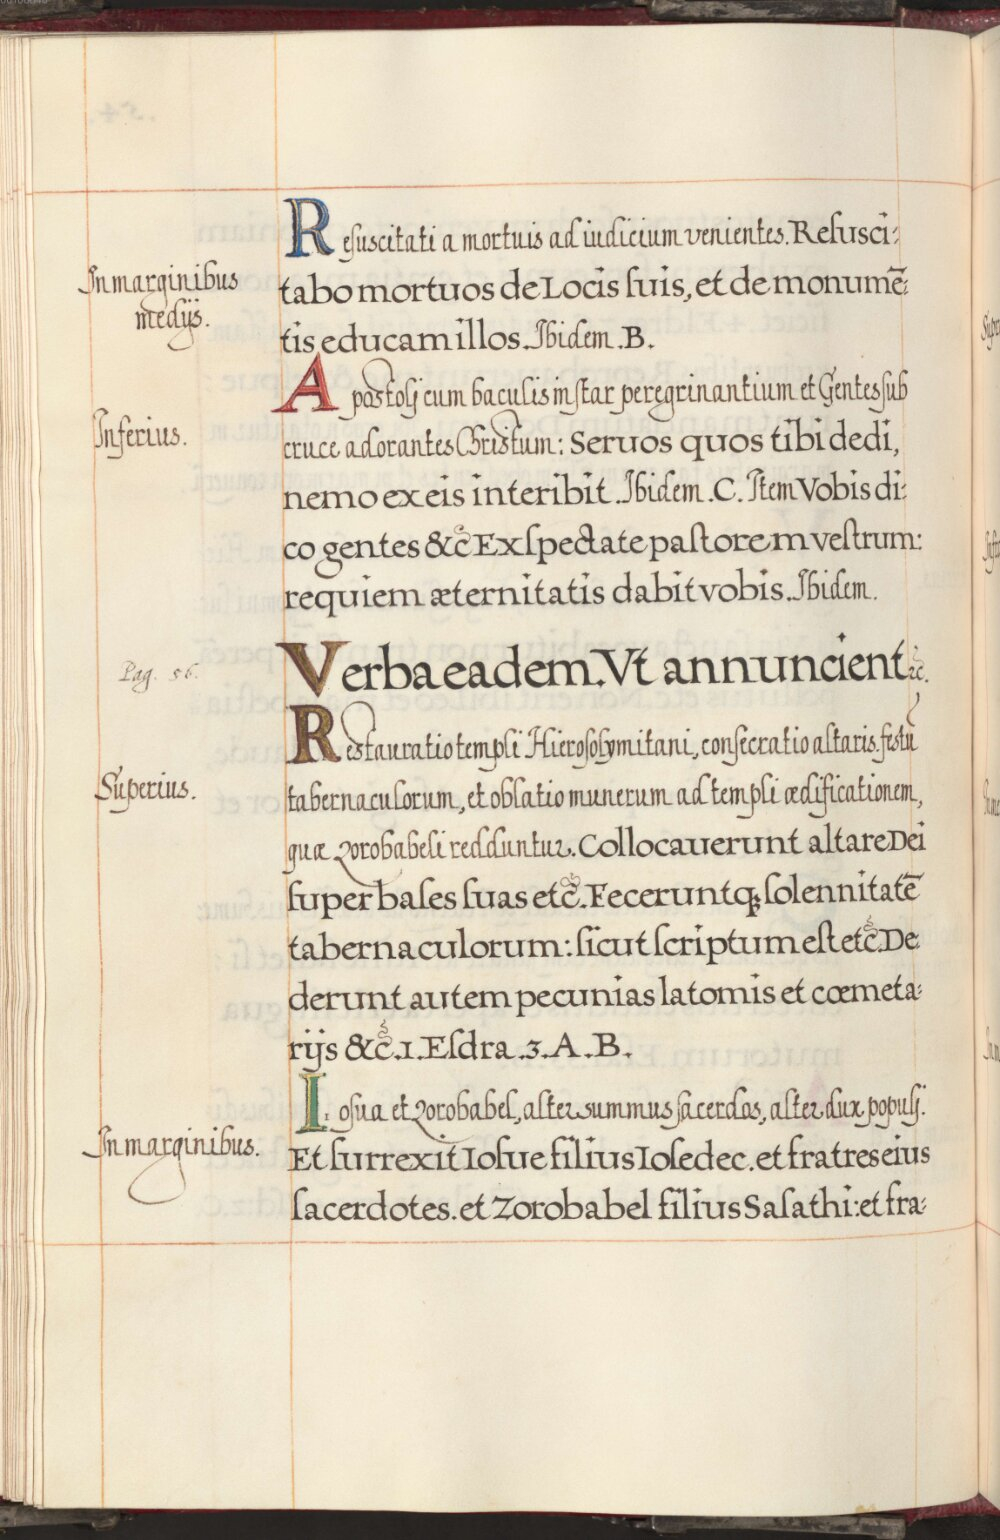 In marginibus
medijs.
Resuscitati a mortuis ad iudicium venientes. Resusci:
tabo mortuos de Locis suis, et de monumē:
tis educam illos. Ibidem .B.
Inferius.
Apostolj cum baculis instar peregrinantium et Gentes sub
cruce adorantes Christum: Seruos quos tibi dedi,
nemo ex eis interibit. Ibidem .C. Item Vobis di:
co gentes &c̃ Exspectate pastorem vestrum:
requiem æternitatis dabit vobis. Ibidem.
Pag. 56.
Verba eadem. Vt annuncient &c.
Superius.
Restauratio templi Hierosolymitani, consecratio altaris. festū
tabernaculorum, et oblatio munerum ad templi ædificationem,
quæ Zorobabeli redduntur. Collocauerunt altare Dei
super bases suas etc̃. Feceruntq; solennitatē
tabernaculorum: sicut scriptum est etc̃. De:
derunt autem pecunias latomis et cœmeta:
rijs &c̃. 1. Esdra .3. A. B.
In marginibus.
Iosua et Zorobabel, alter summus sacerdos, alter dux populj.
Et surrexit Iosue filius Iosedec. et fratres eius
sacerdotes. et Zorobabel filius Salathi: et fra: